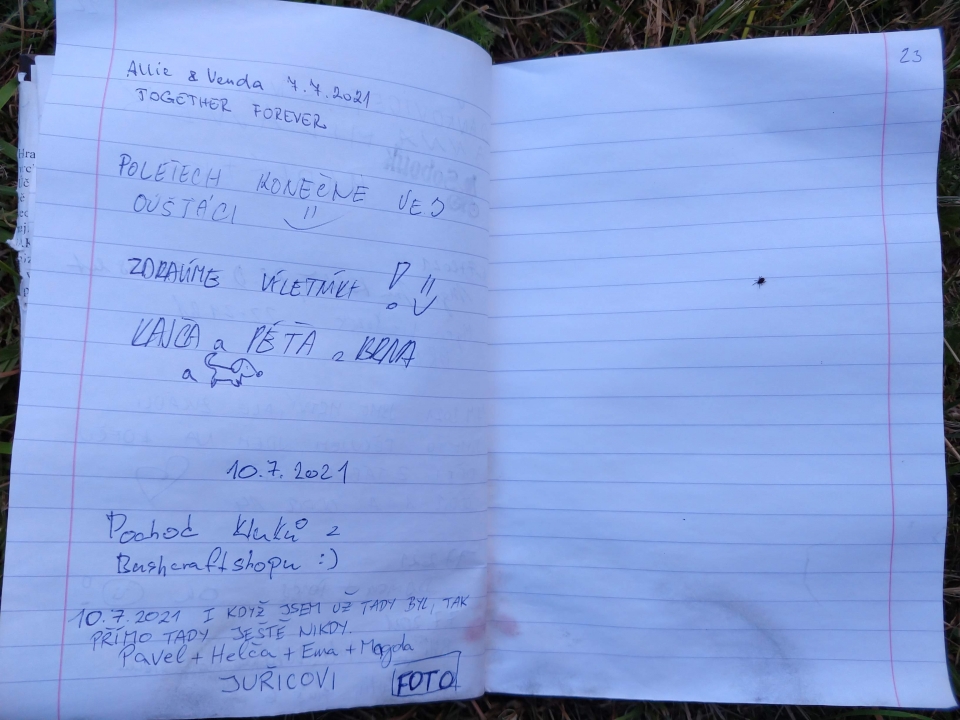 Allie & Venda 7.7.2021
TOGETHER FOREVER
POLETECH KONEČNE
OUŠŤÁCI
ZDRAVÍME VÍLETNÍKY !
KAJČA a PÉŤA z BRNA
a
10.7.2021
Pochod kluků z
Bushcraftshopu :)
10.7.2021 I KDYŽ JSEM UŽ TADY BYL, TAK
PŘÍMO TADY JEŠTĚ NIKDY.
Pavel + Helča + Ema + Magda
JUŘICOVI FOTO
23